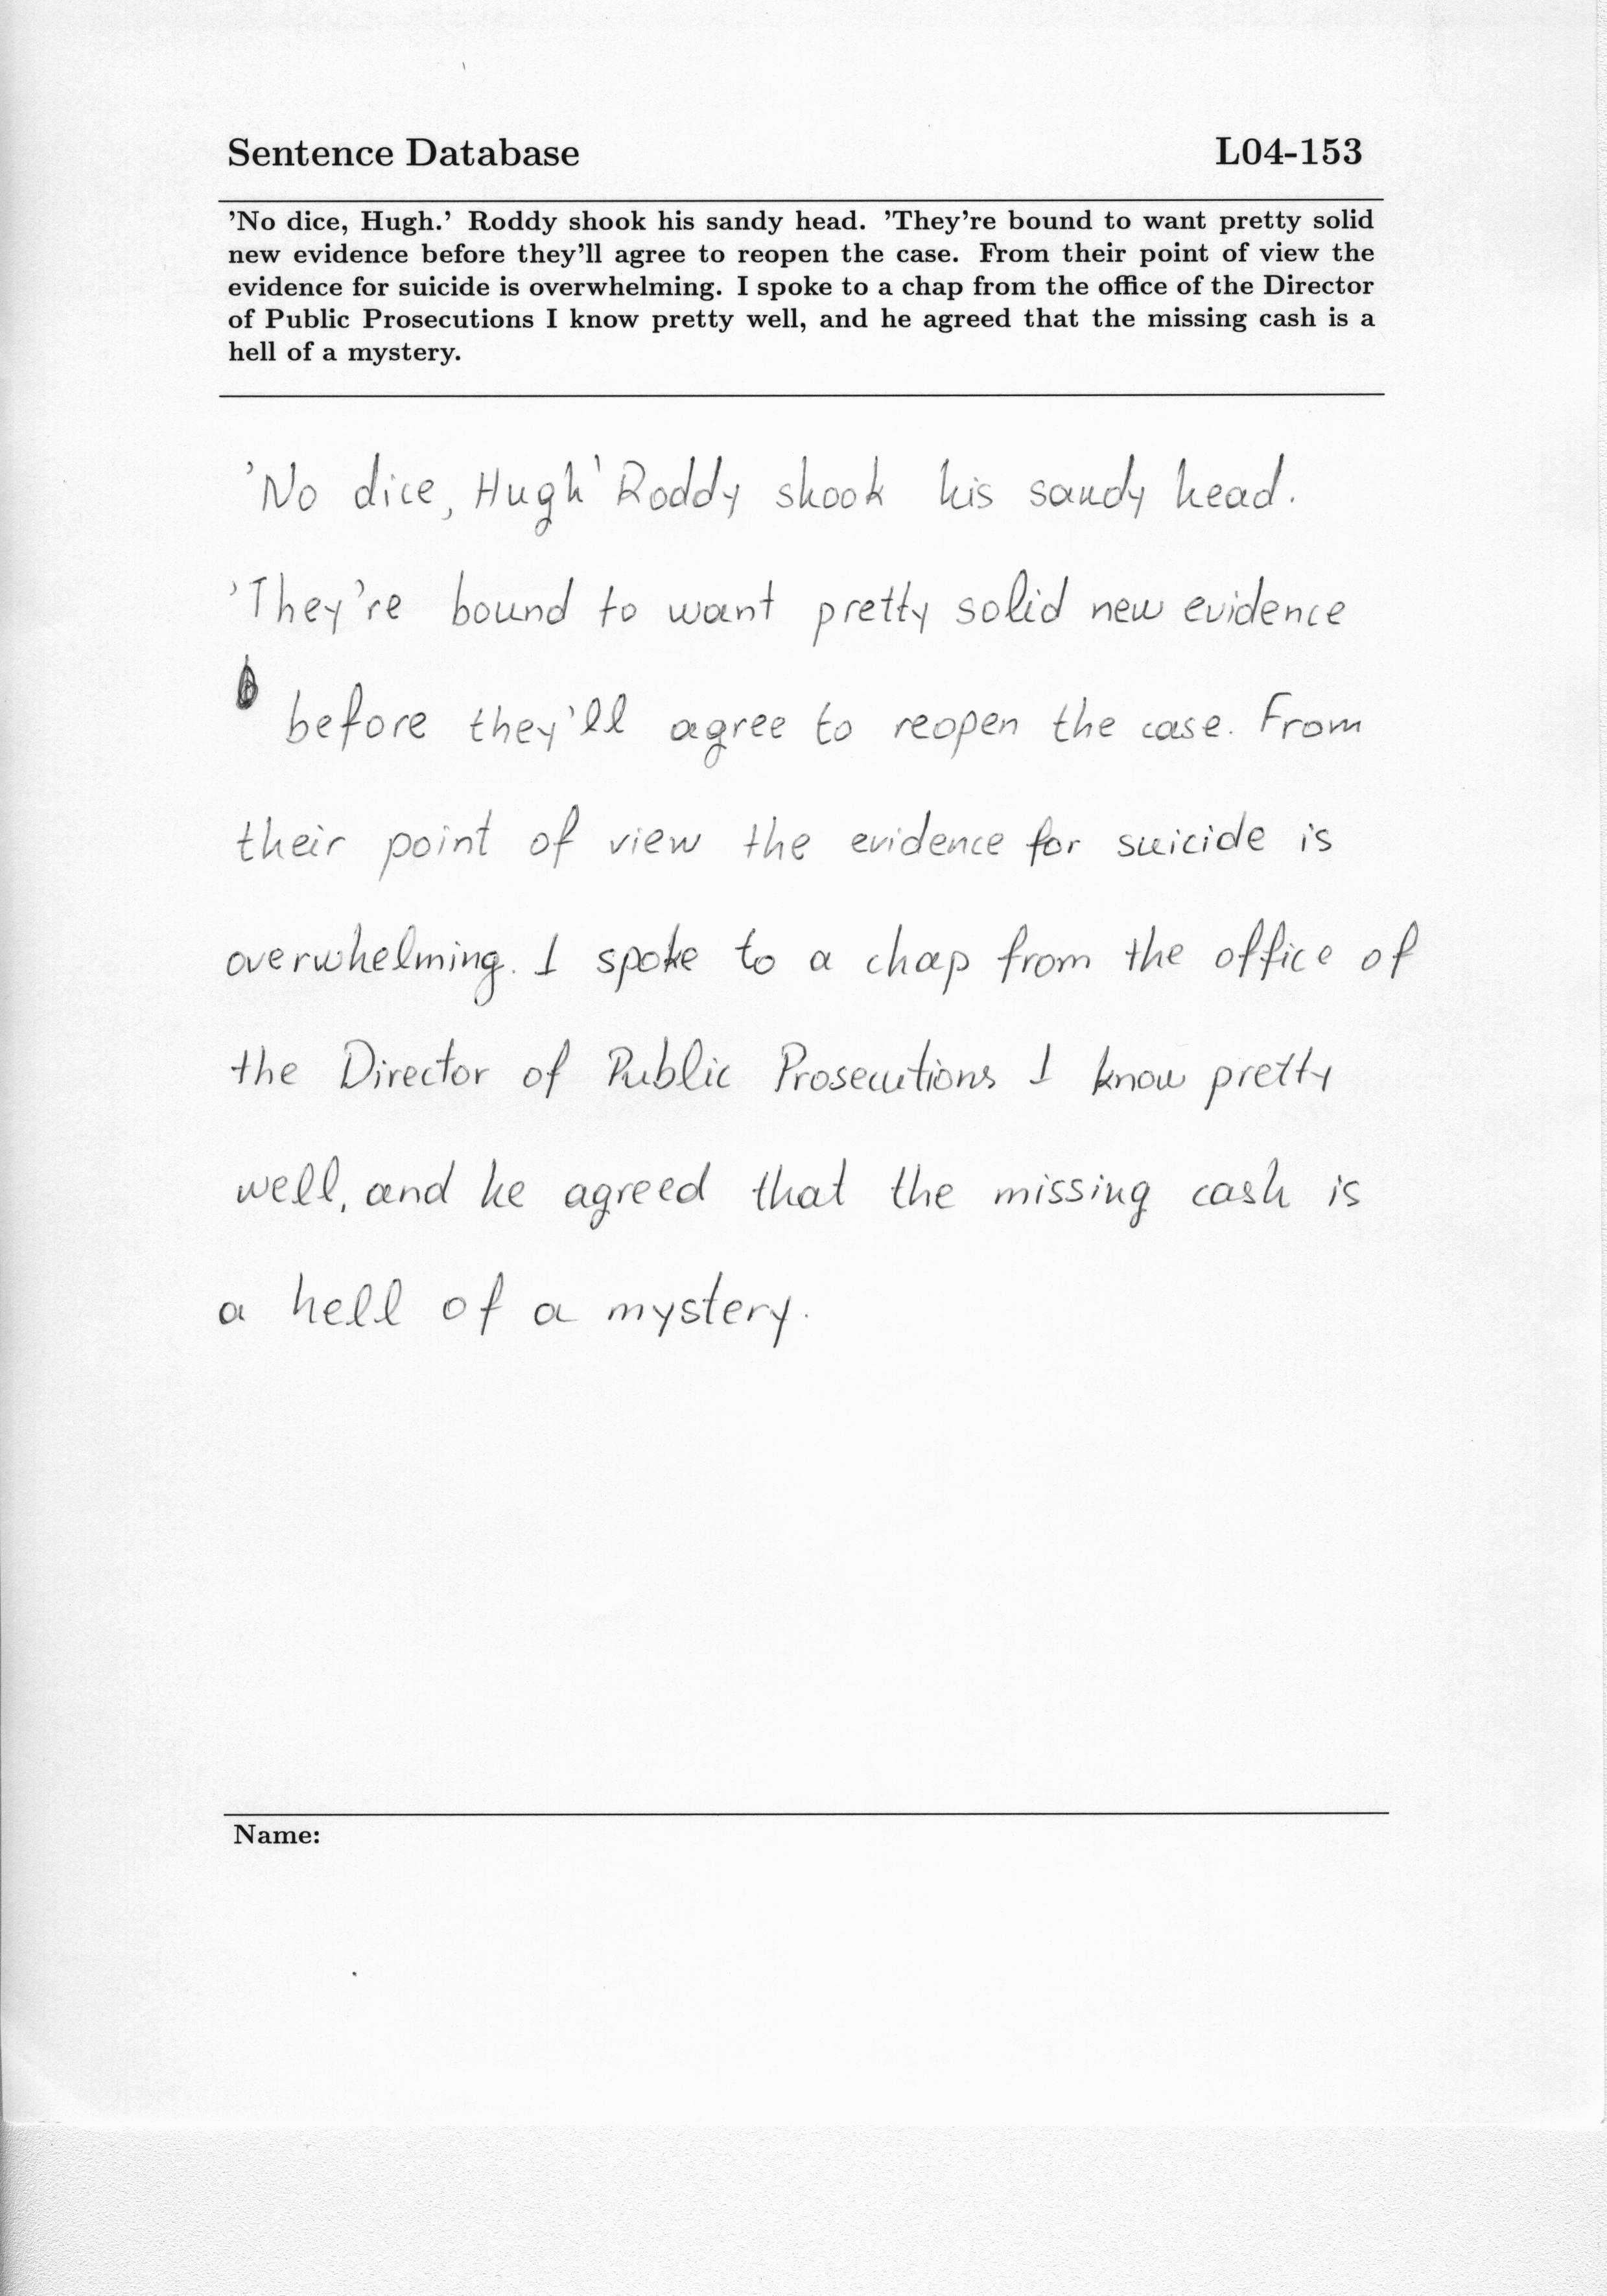 Sentence Database L04-153
’No dice, Hugh.’ Roddy shook his sandy head. ’They’re bound to want pretty solid
new evidence before they’ll agree to reopen the case. From their point of view the
evidence for suicide is overwhelming. I spoke to a chap from the office of the Director
of Public Prosecutions I know pretty well, and he agreed that the missing cash is a
hell of a mystery.
’No dice, Hugh' Roddy shook his sandy head.
’They’re bound to want pretty solid new evidence
before they’ll agree to reopen the case. From
their point of view the evidence for suicide is
overwhelming. I spoke to a chap from the office of
the Director of Public Prosecutions I know pretty
well, and he agreed that the missing cash is
a hell of a mystery.
Name: